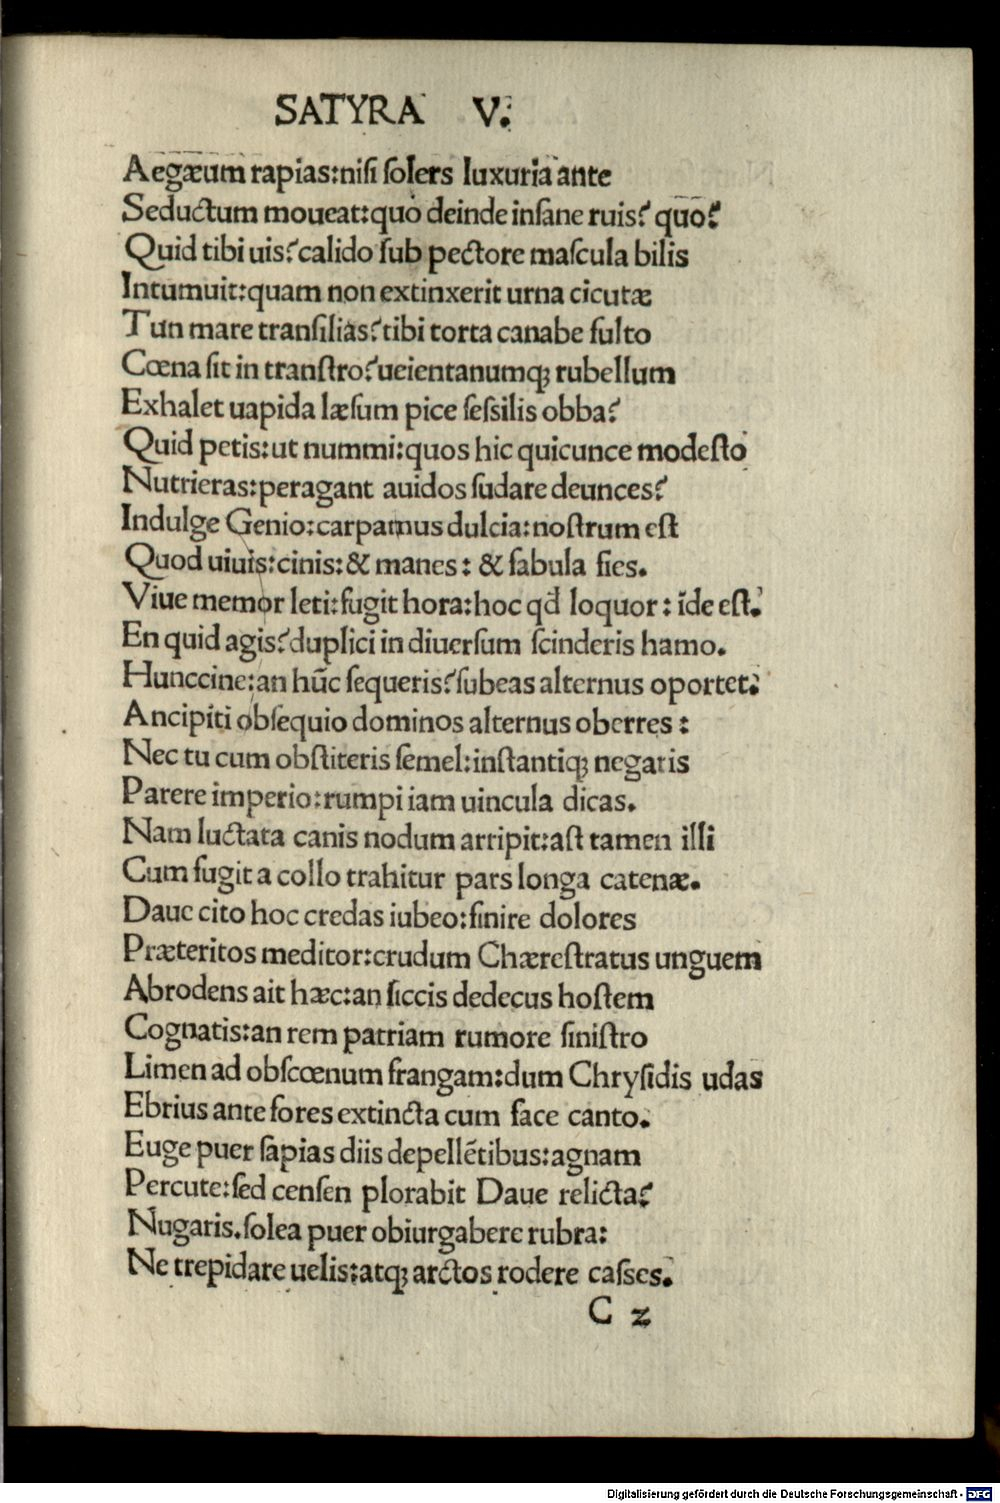 SATYRA V.
Aegæum rapias:nisi solers luxuria ante
Seductum moueat:quo deinde insane ruis? quo?
Quid tibi uis?calido sub pectore mascula bilis
Intumuit:quam non extinxerit urna cicutæ
Tun mare transilias?tibi torta canabe fulto
Cœna sit in transtro?ueientanumq; rubellum
Exhalet uapida læsum pice sessilis obba?
Quid petis:ut nummi:quos hic quicunce modesto
Nutrieras:peragant auidos sudare deunces?
Indulge Genio:carpamus dulcia:nostrum est
Quod uiuis:cinis:& manes: & fabula fies.
Viue memor leti:fugit hora:hoc qd̄ loquor: īde est.
En quid agis?duplici in diuersum scinderis hamo.
Hunccine:an hūc sequeris?subeas alternus oportet:
Ancipiti obsequio dominos alternus oberres:
Nec tu cum obstiteris semel:instantiq; negaris
Parere imperio:rumpi iam uincula dicas.
Nam luctata canis nodum arripit:ast tamen illi
Cum fugit a collo trahitur pars longa catenæ.
Daue cito hoc credas iubeo:finire dolores
Præteritos meditor:crudum Chærestratus unguem
Abrodens ait hæc:an siccis dedecus hostem
Cognatis:an rem patriam rumore sinistro
Limen ad obscœnum frangam:dum Chrysidis udas
Ebrius ante fores extincta cum face canto.
Euge puer sapias diis depellētibus:agnam
Percute:sed censen plorabit Daue relicta?
Nugaris.solea puer obiurgabere rubra:
Ne trepidare uelis:atq; arctos rodere casses.
C 2
Digitalisierung gefördert durch die Deutsche Forschungsgemeinschaft - DFG